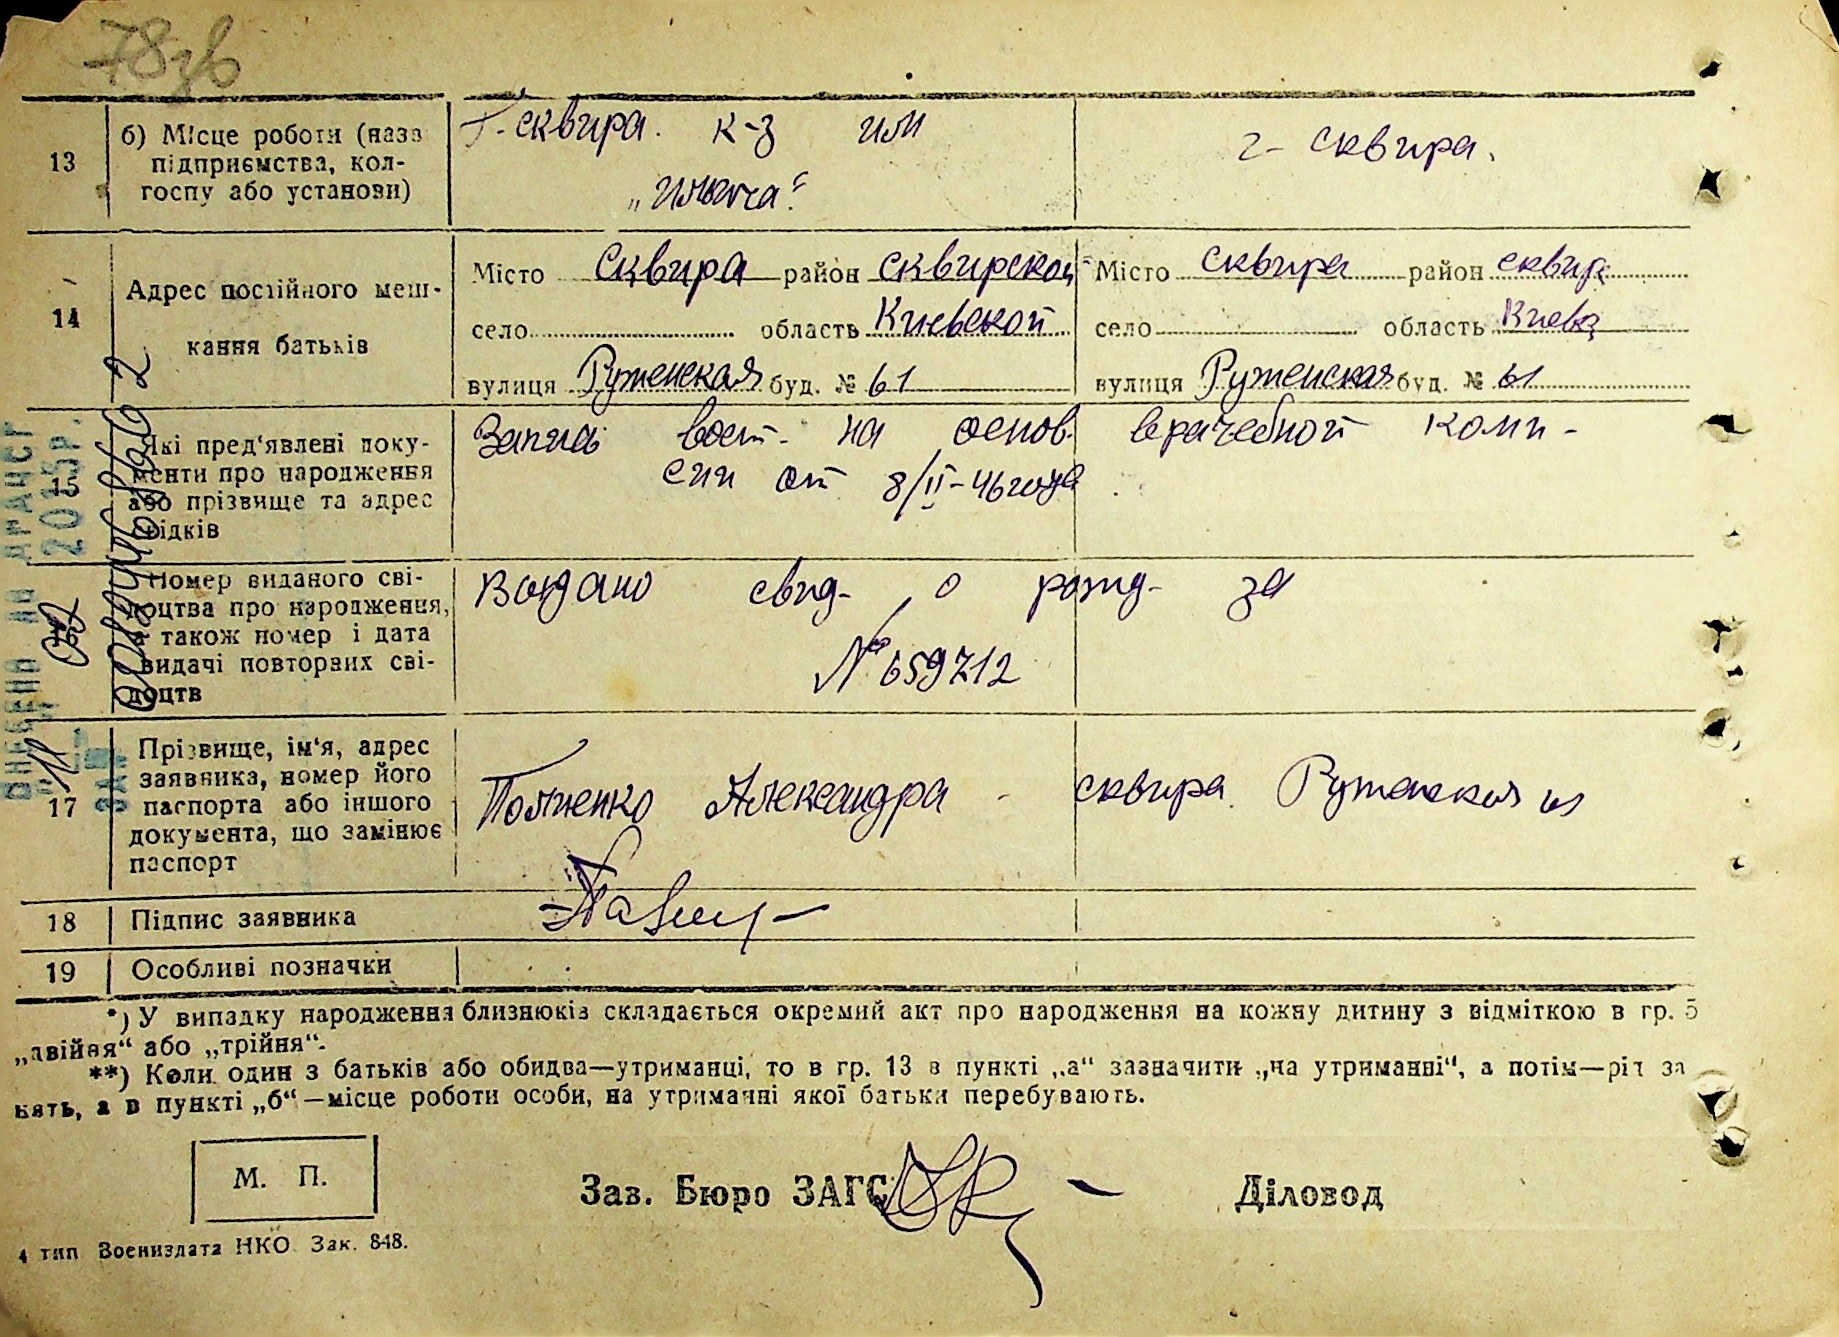 78зв
13
б) Місце роботи (назва
підприємства, кол-
госпу або установи)
г. сквира. к-з или
„Ильича“
г- сквира.
14
Адрес постійного меш-
кання батьків
Місто Сквира район сквирской
село область Киевской
вулиця Руженская буд. № 61
Місто сквира район сквир
село область Киевс
вулиця Руженская буд. № 61
15
Які пред‘явлені доку-
менти про народження
або прізвище та адрес
свідків
Запись вост. на основ. врачебной комис-
сии от 8/II-46 года
Номер виданого сві-
доцтва про народження,
а також номер і дата
видачі повторних сві-
доцтв
Выдано свид- о рожд- за
№ 659712
17
Прізвище, ім‘я, адрес
заявника, номер його
паспорта або іншого
документа, що замінює
паспорт
Александра - сквира Руженская 61
18 Підпис заявника
19 Особливі позначки
*) У випадку народження близнюків складається окремий акт про народження на кожну дитину з відміткою в гр. 5
„двійня“ або „трійня“.
**) Коли один з батьків або обидва—утриманці, то в гр. 13 в пункті „а“ зазначити „на утриманні“, а потім—рід за
нять, а в пункті „б“—місце роботи особи, на утриманні якої батьки перебувають.
М. П.
Зав. Бюро ЗАГС
Діловод
4 тип Воениздата НКО Зак. 848.